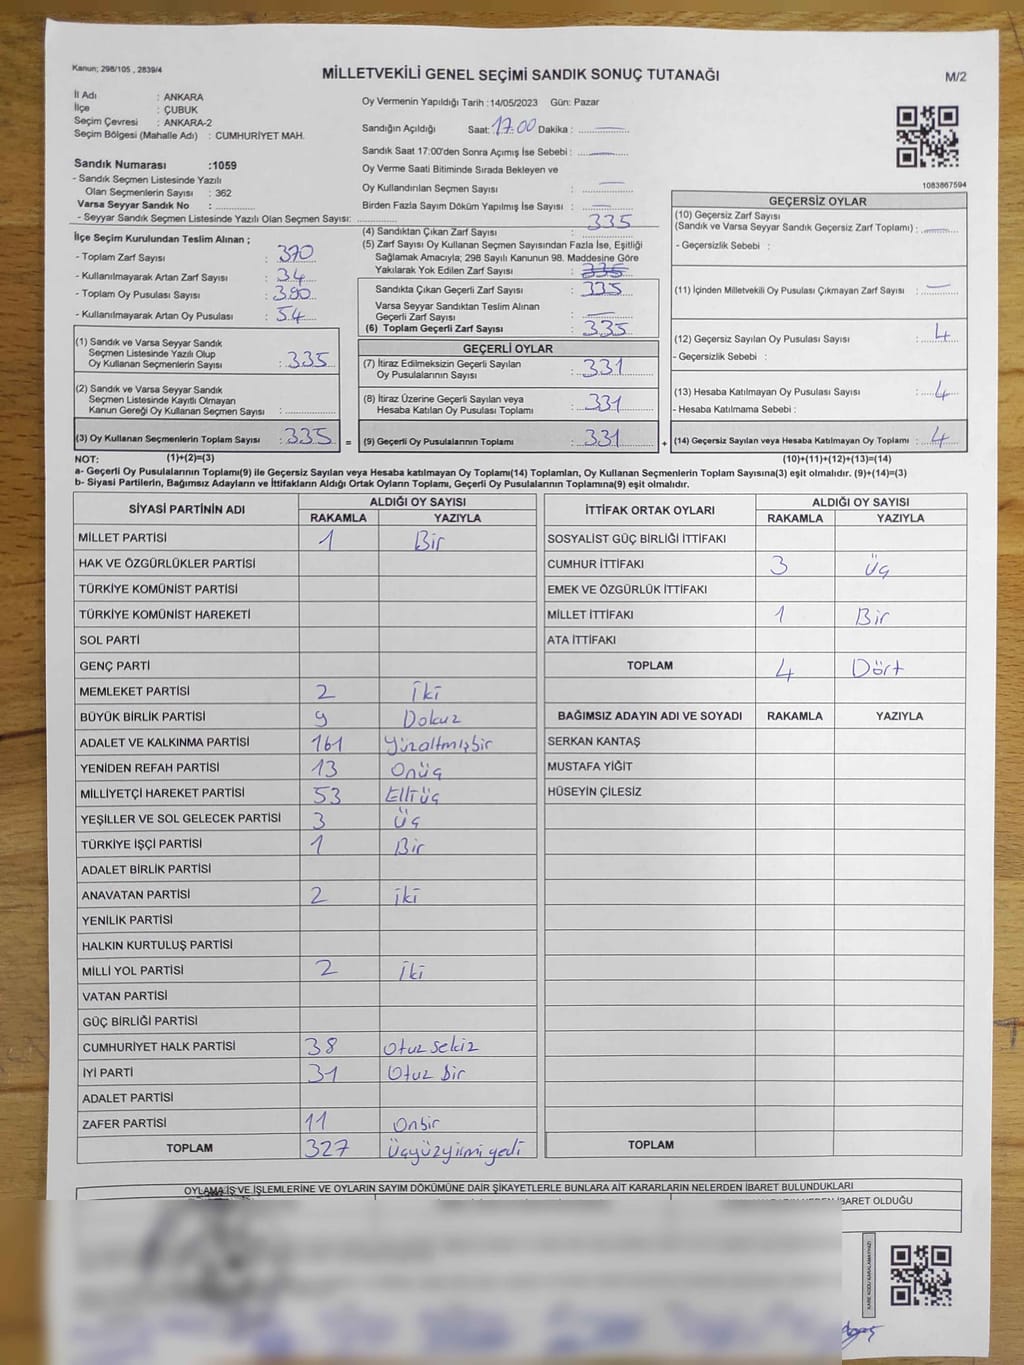 Kanun; 298/105 , 2839/4
MİLLETVEKİLİ GENEL SEÇİMİ SANDIK SONUÇ TUTANAĞI
M/2
İl Adı : ANKARA
İlçe : ÇUBUK
Seçim Çevresi : ANKARA-2
Seçim Bölgesi (Mahalle Adı) : CUMHURİYET MAH.
Sandık Numarası :1059
- Sandık Seçmen Listesinde Yazılı
Olan Seçmenlerin Sayısı : 362
Varsa Seyyar Sandık No :
- Seyyar Sandık Seçmen Listesinde Yazılı Olan Seçmen Sayısı:
Oy Vermenin Yapıldığı Tarih : 14/05/2023 Gün: Pazar
Sandığın Açıldığı Saat: 17.00 Dakika :
Sandık Saat 17:00'den Sonra Açımış İse Sebebi :
Oy Verme Saati Bitiminde Sırada Bekleyen ve
Oy Kullandırılan Seçmen Sayısı :
Birden Fazla Sayım Döküm Yapılmış İse Sayısı :
1083867594
İlçe Seçim Kurulundan Teslim Alınan ;
- Toplam Zarf Sayısı : 370
- Kullanılmayarak Artan Zarf Sayısı : 34
- Toplam Oy Pusulası Sayısı : 390
- Kullanılmayarak Artan Oy Pusulası : 54
(1) Sandık ve Varsa Seyyar Sandık
Seçmen Listesinde Yazılı Olup
Oy Kullanan Seçmenlerin Sayısı : 335
(2) Sandık ve Varsa Seyyar Sandık
Seçmen Listesinde Kayıtlı Olmayan
Kanun Gereği Oy Kullanan Seçmen Sayısı :
(3) Oy Kullanan Seçmenlerin Toplam Sayısı : 335 =
(4) Sandıktan Çıkan Zarf Sayısı : 335
(5) Zarf Sayısı Oy Kullanan Seçmen Sayısından Fazla İse, Eşitliği
Sağlamak Amacıyla; 298 Sayılı Kanunun 98. Maddesine Göre
Yakılarak Yok Edilen Zarf Sayısı : 335
Sandıkta Çıkan Geçerli Zarf Sayısı : 335
Varsa Seyyar Sandıktan Teslim Alınan
Geçerli Zarf Sayısı :
(6) Toplam Geçerli Zarf Sayısı : 335
GEÇERLİ OYLAR
(7) İtiraz Edilmeksizin Geçerli Sayılan
Oy Pusulalarının Sayısı : 331
(8) İtiraz Üzerine Geçerli Sayılan veya
Hesaba Katılan Oy Pusulası Toplamı : 331
(9) Geçerli Oy Pusulalarının Toplamı : 331 +
GEÇERSİZ OYLAR
(10) Geçersiz Zarf Sayısı
(Sandık ve Varsa Seyyar Sandık Geçersiz Zarf Toplamı) :
- Geçersizlik Sebebi :
(11) İçinden Milletvekili Oy Pusulası Çıkmayan Zarf Sayısı :
(12) Geçersiz Sayılan Oy Pusulası Sayısı : 4
- Geçersizlik Sebebi :
(13) Hesaba Katılmayan Oy Pusulası Sayısı : 4
- Hesaba Katılmama Sebebi :
(14) Geçersiz Sayılan veya Hesaba Katılmayan Oy Toplamı : 4
NOT: (1)+(2)=(3) (10)+(11)+(12)+(13)=(14)
a- Geçerli Oy Pusulalarının Toplamı(9) ile Geçersiz Sayılan veya Hesaba katılmayan Oy Toplamı(14) Toplamları, Oy Kullanan Seçmenlerin Toplam Sayısına(3) eşit olmalıdır. (9)+(14)=(3)
b- Siyasi Partilerin, Bağımsız Adayların ve İttifakların Aldığı Ortak Oyların Toplamı, Geçerli Oy Pusulalarının Toplamına(9) eşit olmalıdır.
SİYASİ PARTİNİN ADI ALDIĞI OY SAYISI
RAKAMLA YAZIYLA
MİLLET PARTİSİ 1 Bir
HAK VE ÖZGÜRLÜKLER PARTİSİ
TÜRKİYE KOMÜNİST PARTİSİ
TÜRKİYE KOMÜNİST HAREKETİ
SOL PARTİ
GENÇ PARTİ
MEMLEKET PARTİSİ 2 İki
BÜYÜK BİRLİK PARTİSİ 9 Dokuz
ADALET VE KALKINMA PARTİSİ 161 Yüzaltmışbir
YENİDEN REFAH PARTİSİ 13 Onüç
MİLLİYETÇİ HAREKET PARTİSİ 53 Elliüç
YEŞİLLER VE SOL GELECEK PARTİSİ 3 Üç
TÜRKİYE İŞÇİ PARTİSİ 1 Bir
ADALET BİRLİK PARTİSİ
ANAVATAN PARTİSİ 2 iki
YENİLİK PARTİSİ
HALKIN KURTULUŞ PARTİSİ
MİLLİ YOL PARTİSİ 2 İki
VATAN PARTİSİ
GÜÇ BİRLİĞİ PARTİSİ
CUMHURİYET HALK PARTİSİ 38 Otuz sekiz
İYİ PARTİ 31 Otuz bir
ADALET PARTİSİ
ZAFER PARTİSİ 11 Onbir
TOPLAM 327 Üçyüzyirmi yedi
İTTİFAK ORTAK OYLARI ALDIĞI OY SAYISI
RAKAMLA YAZIYLA
SOSYALİST GÜÇ BİRLİĞİ İTTİFAKI
CUMHUR İTTİFAKI 3 Üç
EMEK VE ÖZGÜRLÜK İTTİFAKI
MİLLET İTTİFAKI 1 Bir
ATA İTTİFAKI
TOPLAM 4 Dört
BAĞIMSIZ ADAYIN ADI VE SOYADI RAKAMLA YAZIYLA
SERKAN KANTAŞ
MUSTAFA YİĞİT
HÜSEYİN ÇİLESİZ
TOPLAM
OYLAMA İŞ VE İŞLEMLERİNE VE OYLARIN SAYIM DÖKÜMÜNE DAİR ŞİKAYETLERLE BUNLARA AİT KARARLARIN NELERDEN İBARET BULUNDUKLARI
İBARET OLDUĞU